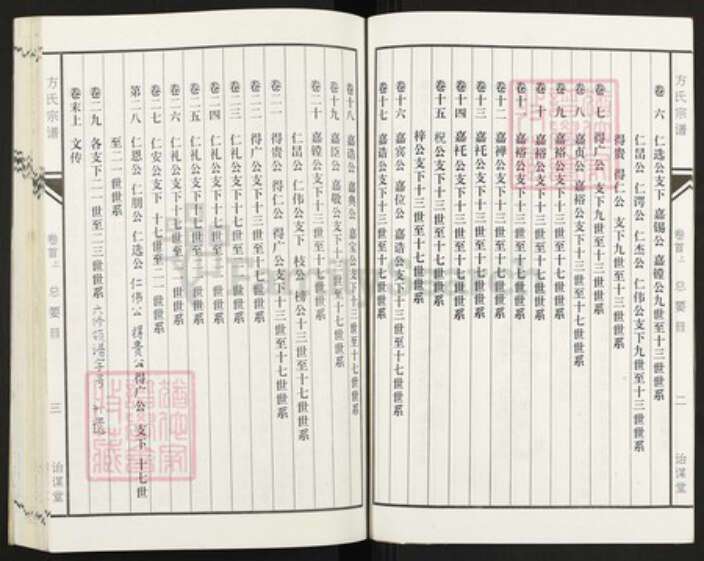 方氏宗谱
卷首上
总要目
二
治谋堂
卷六 仁选公支下 嘉锡公 嘉镗公九世至十三世世系
仁昌公 仁谔公 仁杰公 仁伟公支下九世至十三世世系
得贵 得仁公 支下九世至十三世世系
卷七 得广公 支下九世至十三世世系
卷八 嘉贞公 嘉裕公支下十三世至十七世世系
卷九 嘉裕公支下十三世至十七世世系
卷十 嘉裕公支下十三世至十七世世系
卷十一 嘉裕公支下十三世至十七世世系
卷十二 嘉禅公支下十三世至十七世世系
卷十三 嘉祉公支下十三世至十七世世系
卷十四 嘉祉公支下十三世至十七世世系
卷十五 祝公支下十三世至十七世世系
梓公支下十三世至十七世世系
卷十六 嘉宾公 嘉位公 嘉诰公支下十三世至十七世世系
卷十七 嘉诰公支下十三世至十七世世系
卷十八 嘉诰公 嘉典公 嘉宝公支下十三世至十七世世系
卷十九 嘉臣公 嘉敬公支下十三世至十七世世系
卷二十 嘉镗公支下十三世至十七世世系
仁昌公 仁伟公支下 枝公 榜公十三世至十七世世系
卷二一 得贵公 得仁公 得广公支下十三世至十七世世系
卷二二 得广公支下十三世至十七世世系
卷二三 仁礼公支下十七世至 世世系
卷二四 仁礼公支下十七世至 世世系
卷二五 仁礼公支下十七世至 世世系
卷二六 仁礼公支下十七世至 世世系
卷二七 仁安公支下十七世至二一世世系
第二八 仁恩公 仁朋公 仁选公 仁伟公 得贵公 得广公 支下 十七世
至二一世世系
卷二九 各支下二一世至二三世世系
卷末上 文传
方氏宗谱
卷首上
总要目
三
治谋堂